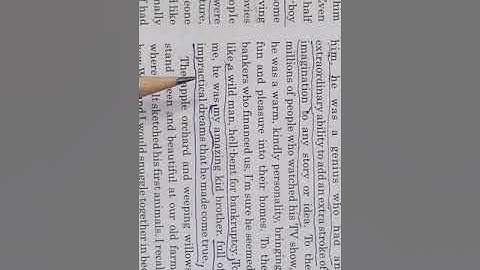 him
Even
half
-boy
ome
ving
vies
ople
were
ture,
eone
like
nally
had
him, he was a genius who had an
extraordinary ability to add an extra stroke of
imagination to any story or idea. To the
millions of people who watched his TV show,
he was a warm, kindly personality, bringing
fun and pleasure into their homes. To the
bankers who financed us, I'm sure he seemed
like a wild man, hell-bent for bankruptcy. To
me, he was my amazing kid brother, full of
impractical dreams that he made come true.
The apple orchard and weeping willows
stand green and beautiful at our old farm
where sketched his first animals. I recal
and I would snuggle together in